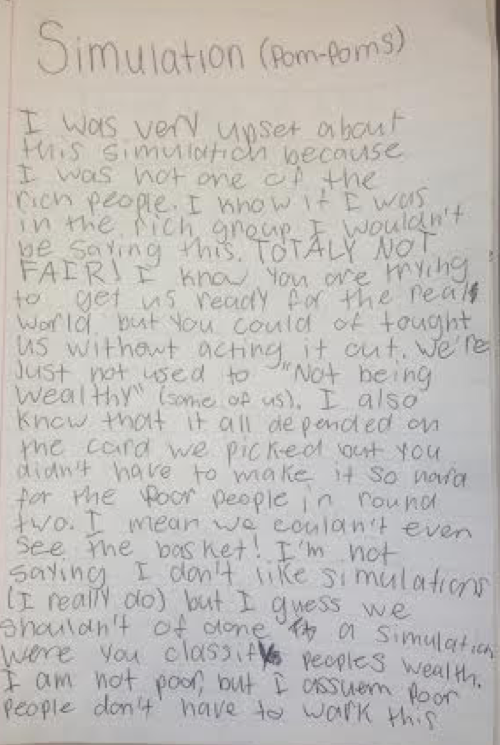 Simulation (Pom-Poms)
I was very upset about
this simulation because
I was not one of the
rich people. I know if I was
in the rich group I wouldn't
be saying this. TOTALY NOT
FAIR! I know you are trying
to get us ready for the real
world, but you could of tought
us without acting it out. We're
Just not used to "Not being
wealthy" (some of us). I also
know that it all depended on
the card we picked but you
didn't have to make it so hard
for the poor people in round
two. I mean we couldn't even
see the basket! I'm not
saying I don't like simulations
(I really do) but I guess we
shouldn't of done a simulation
were you classify peoples wealth.
I am not poor, but I assuem poor
people don't have to work this